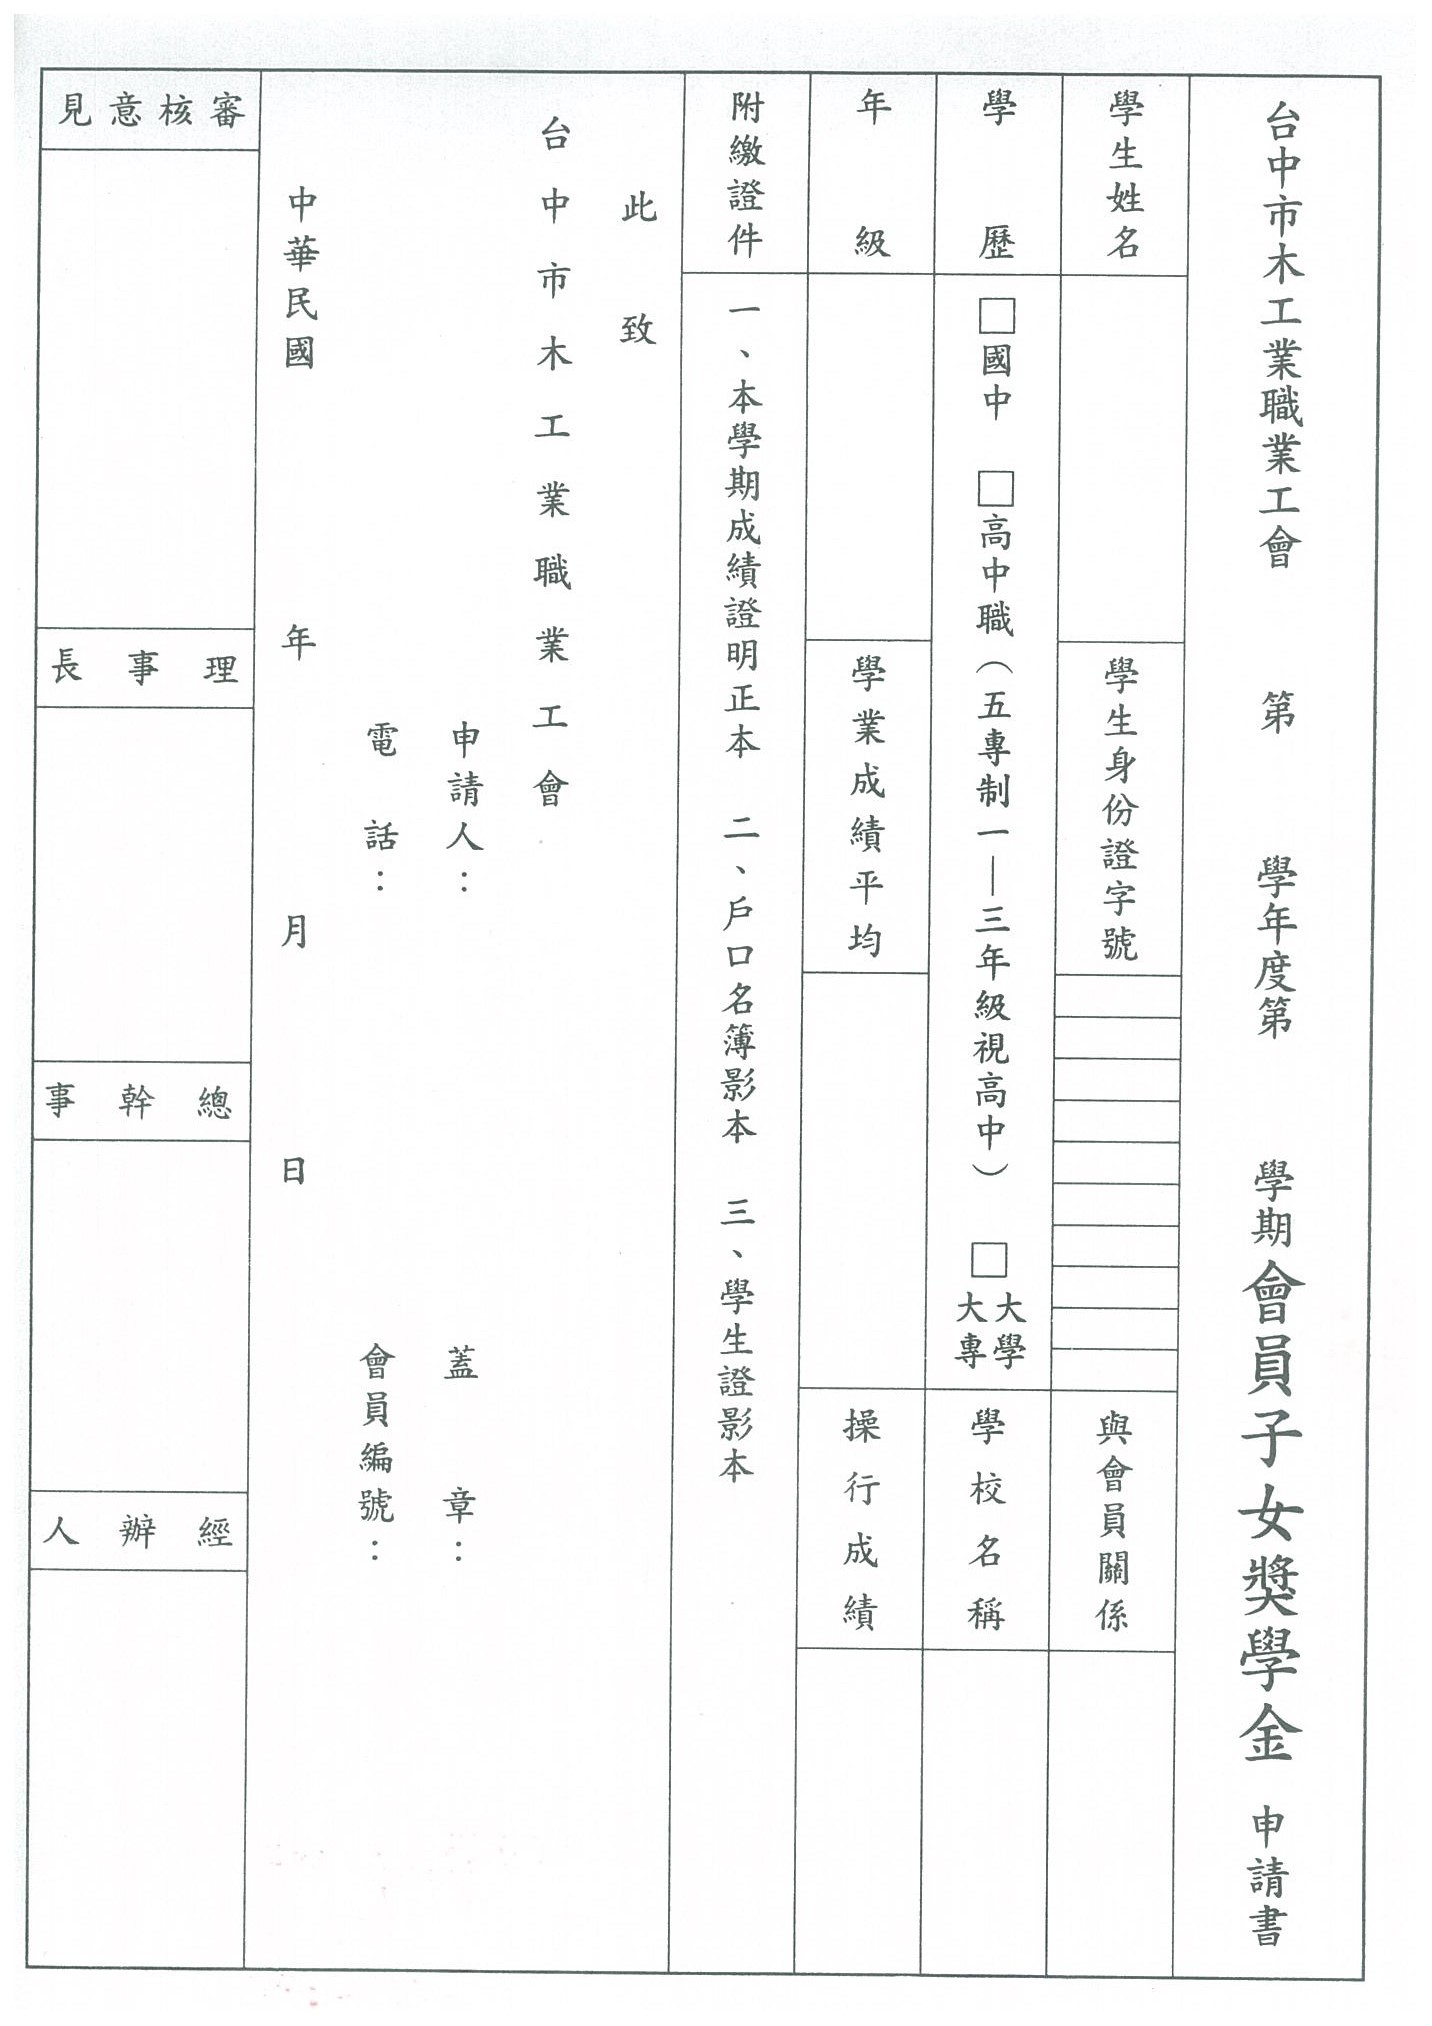 台中市木工業職業工會 第 學年度第 學期會員子女獎學金 申請書
學生姓名
學生身份證字號
與會員關係
學歷
□國中 □高中職（五專制一—三年級視高中） □大學大專
學校名稱
年級
學業成績平均
操行成績
附繳證件
一、本學期成績證明正本 二、戶口名簿影本 三、學生證影本
此致
台中市木工業職業工會
申請人： 蓋章：
電話： 會員編號：
中華民國 年 月 日
審核意見
理事長
總幹事
經辦人